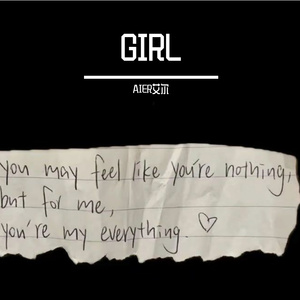 GIRL
AIER艾尔
you may feel like you're nothing,
but for me,
you're my everything. ♡